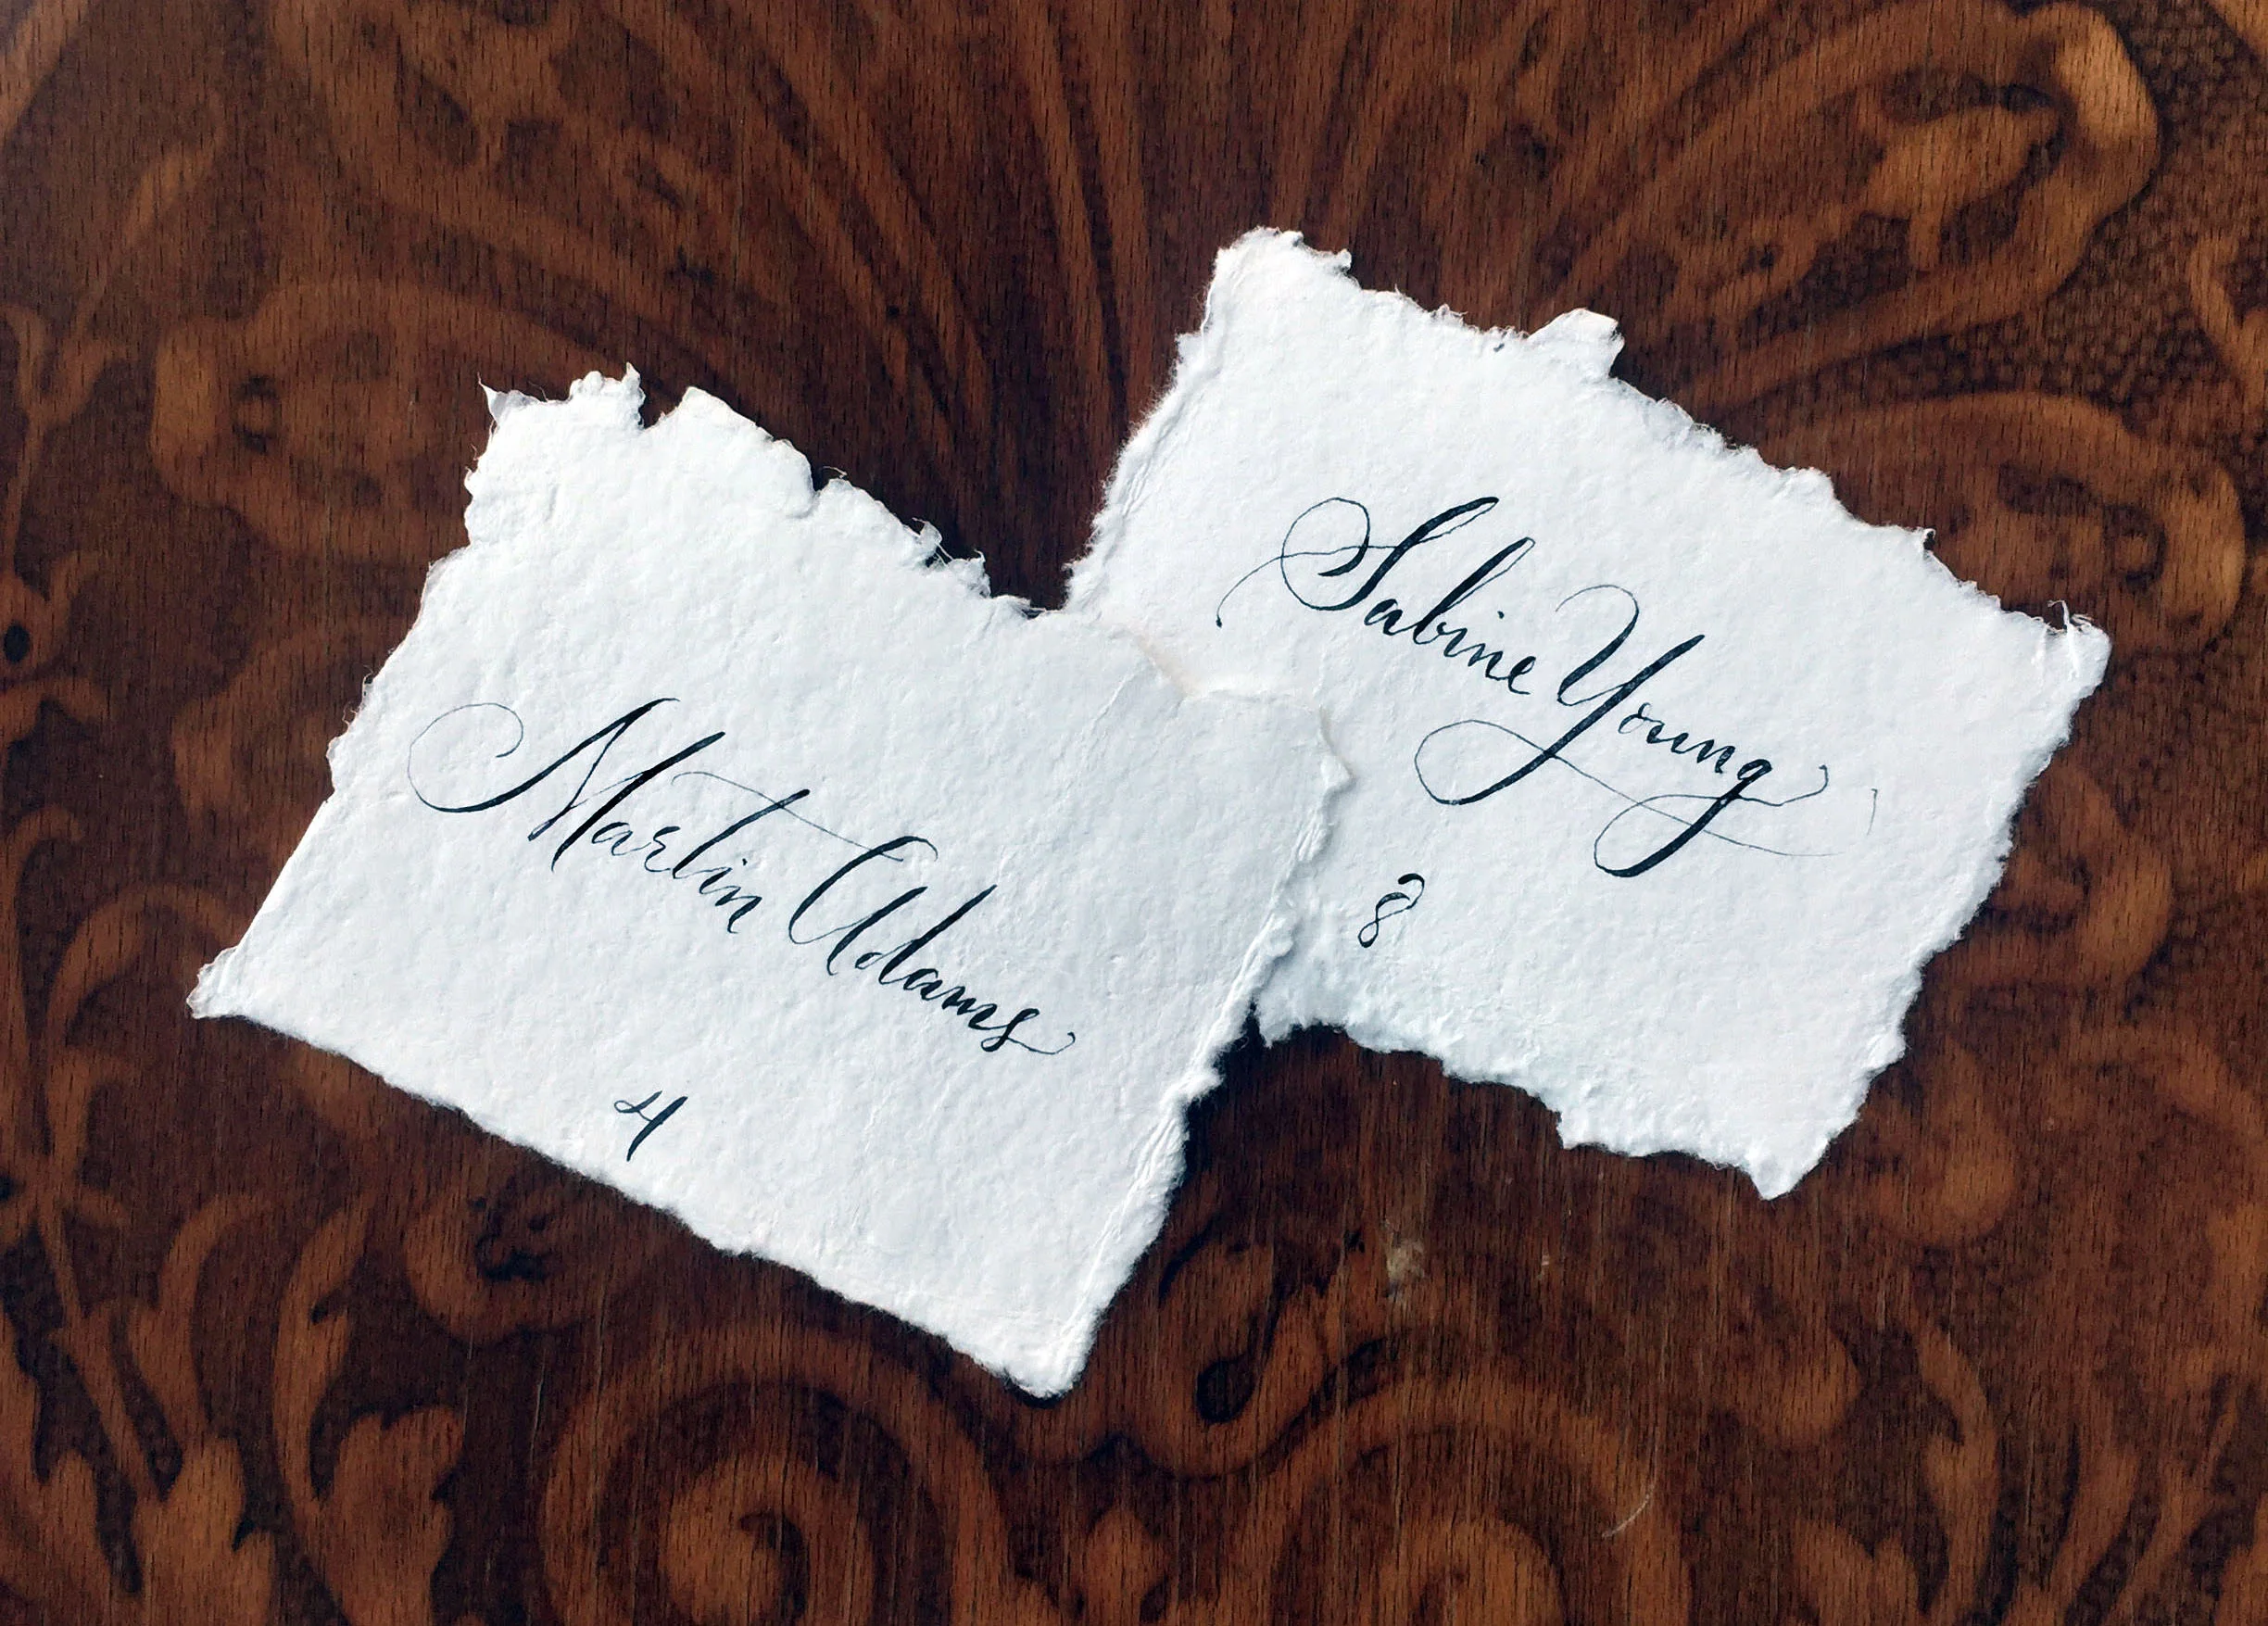 Martin Adams
4
Sabine Young
8